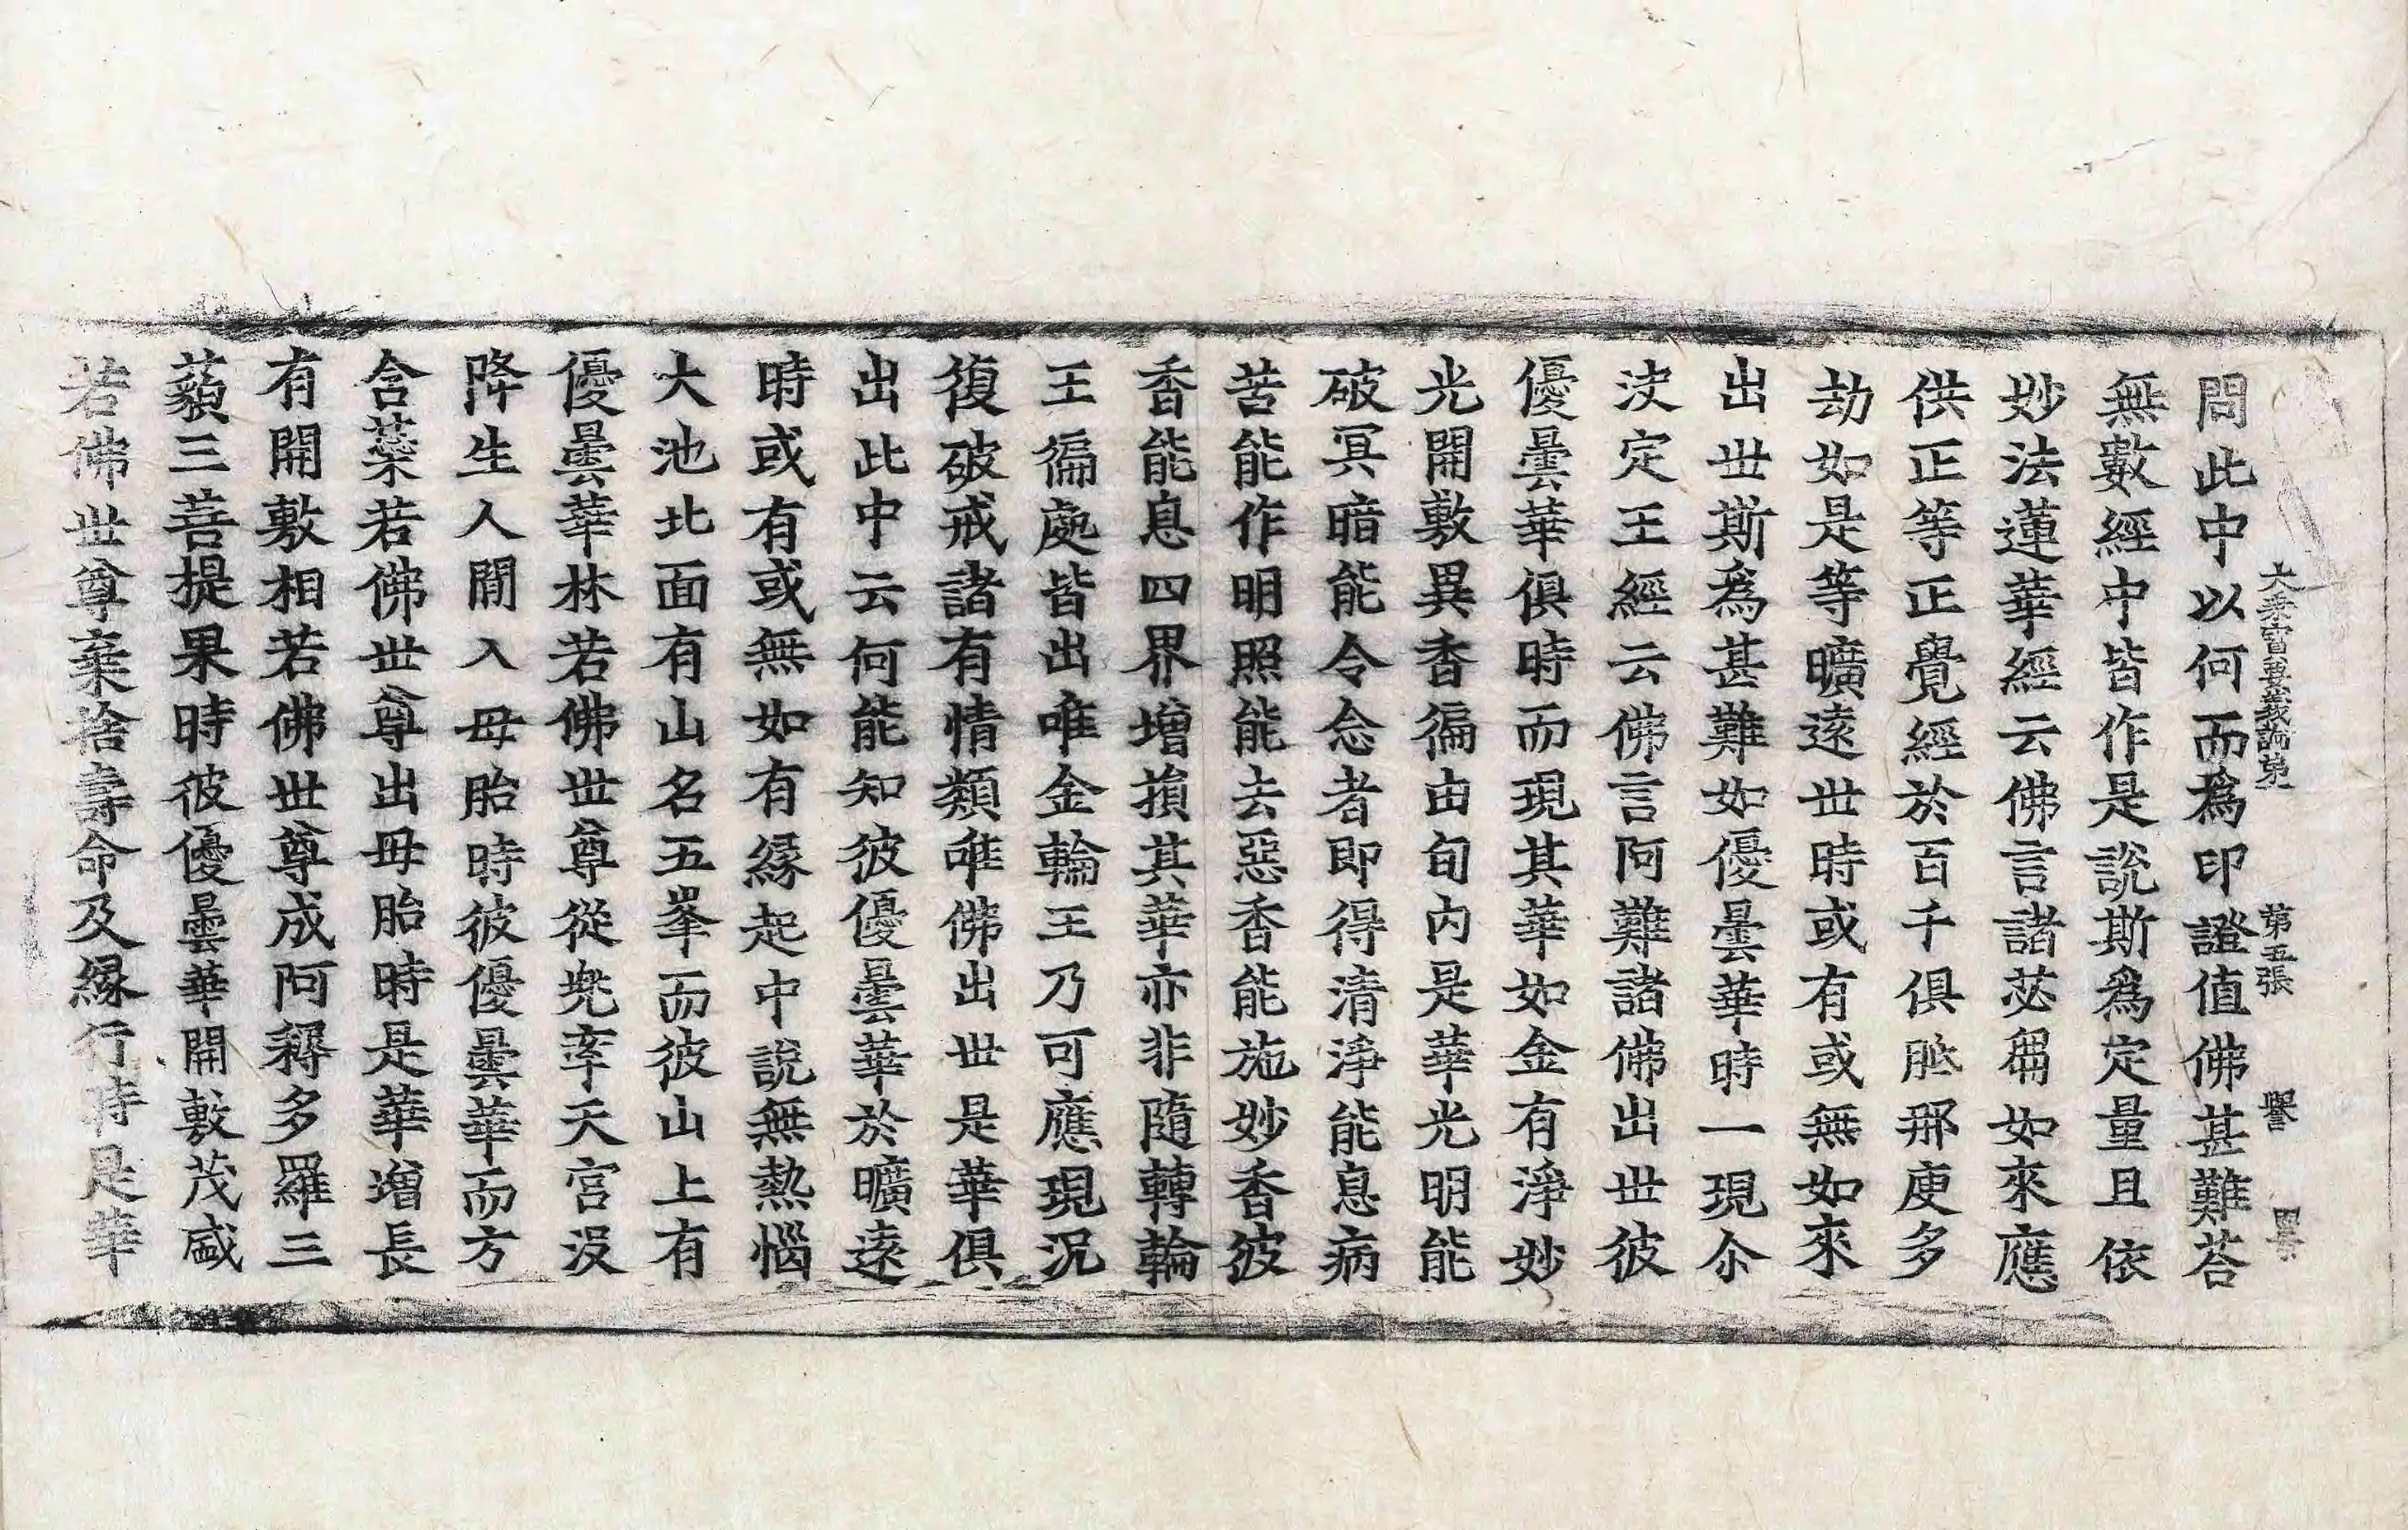 大乘寶要義論第一 第五張 譽
問此中以何而爲印證值佛甚難荅
無數經中皆作是說斯爲定量且依
妙法蓮華經云佛言諸苾芻如來應
供正等正覺經於百千俱胝那庾多
劫如是等曠遠世時或有或無如來
出世斯爲甚難如優曇華時一現尒
決定王經云佛言阿難諸佛出世彼
優曇華俱時而現其華如金有淨妙
光開敷異香徧由旬內是華光明能
破冥暗能令念者即得清淨能息病
苦能作明照能去惡香能施妙香彼
香能息四界增損其華亦非隨轉輪
王徧處皆出唯金輪王乃可應現況
復破戒諸有情類唯佛出世是華俱
出此中云何能知彼優曇華於曠遠
時或有或無如有緣起中說無熱惱
大池北面有山名五峯而彼山上有
優曇華林若佛世尊從兠率天宮沒
降生人間入母胎時彼優曇華而方
含蘂若佛世尊出母胎時是華增長
有開敷相若佛世尊成阿耨多羅三
藐三菩提果時彼優曇華開敷茂盛
若佛世尊棄捨壽命及緣行時是華